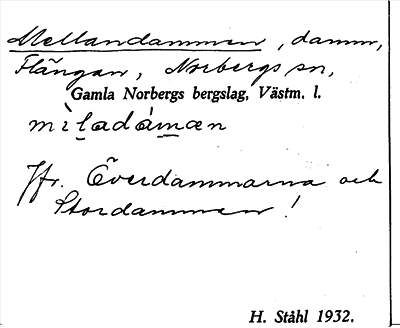 Mellandammen, damm,
Flängan, Norbergs sn,
Gamla Norbergs bergslag, Västm. l.
mìladámæn
Jfr. Överdammarna och
Stordammen!
H. Ståhl 1932.